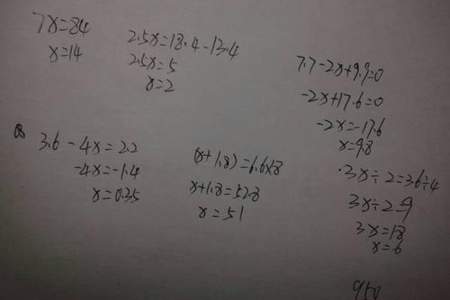 7x=84
x=14
2.5x=18.4-13.4
2.5x=5
x=2
7.7-2x+9.9=0
-2x+17.6=0
-2x=-17.6
x=9.8
3.6-4x=2.2
-4x=-1.4
x=0.35
(x+1.8)=6.6×8
x+1.8=52.8
x=51
3x÷2=36÷4
3x÷2=9
3x=18
x=6